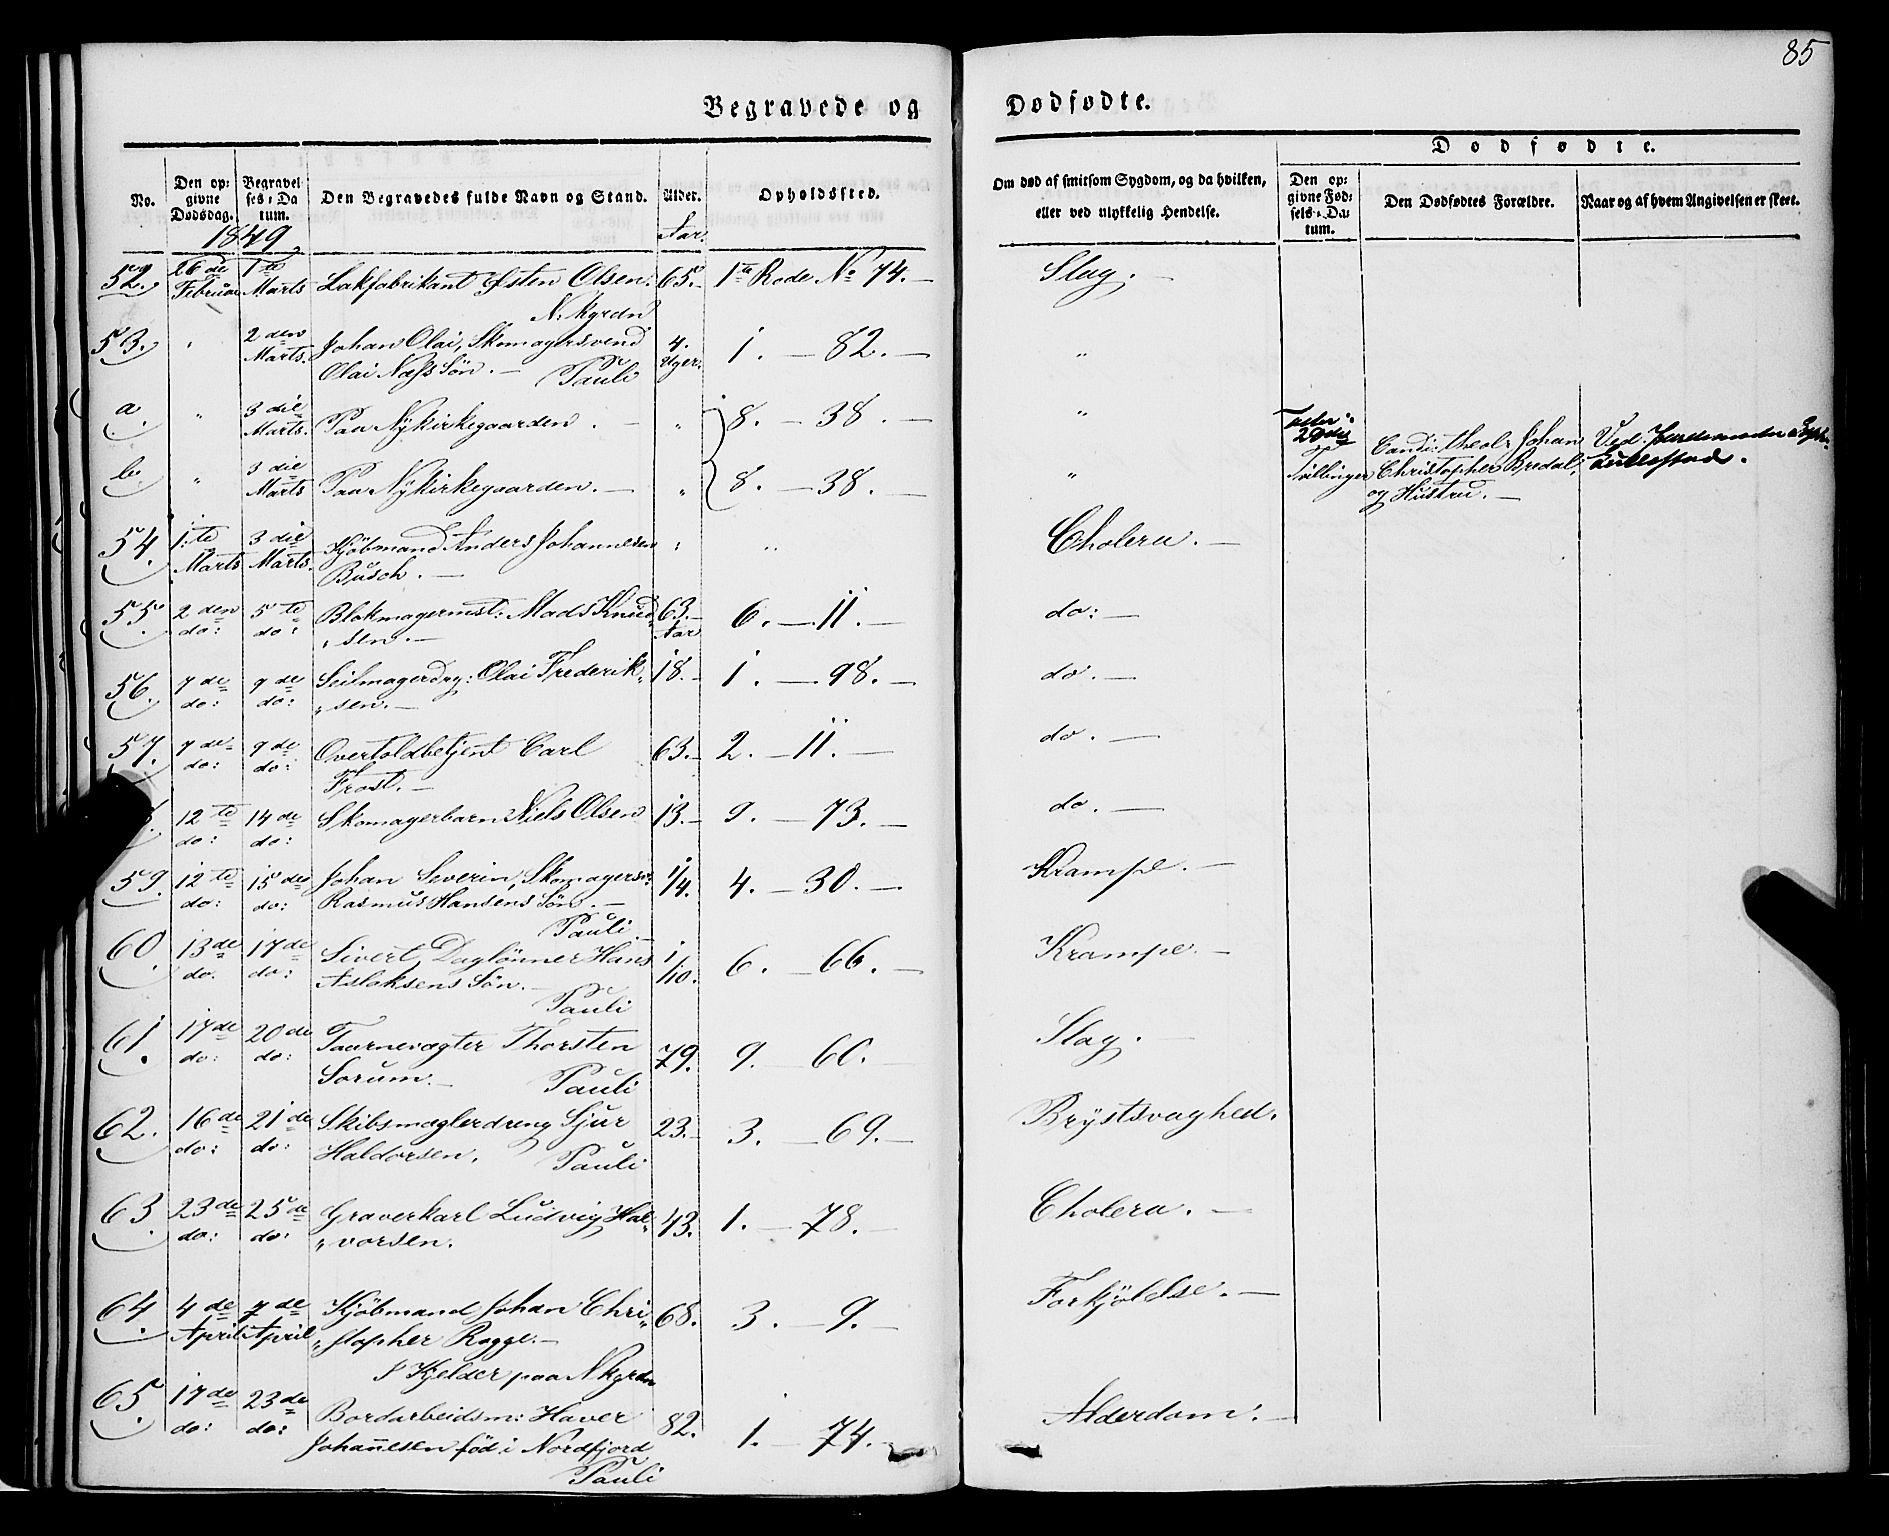 85
Begravede og Dødfødte.
Dødfødte.
No.
Den opgivne Dødsdag.
Begravelses-Datum.
Den Begravedes fulde Navn og Stand.
Alder.
Opholdssted.
Om død af smitsom Sygdom, og da hvilken, eller ved ulykkelig Hendelse.
Den opgivne Fødsels-Datum.
Den Dødfødtes Forældre.
Naar og af hvem Angivelsen er skeet.
1849
Aar.
52. 26de Februar 1ste Marts Lakfabrikant Østen Olsen. 65. 1ste Rode No 74. Slag.
N. Kgrdn
53. " 2den Marts. Johan Olai, Skomagersvend 4 Uger. 1. — 82. "
Olai Næss Søn. — Pauli
a. " 3die Marts. Paa Nykirkegaarden. " 8. — 38. " 28de Candi: theol: Johan
b. " 3die Marts Paa Nykirkegaarden. " 8. — 38. " Tvillinger Christopher Bredal,
og Hustru. —
54. 1ste Marts 3die Marts. Kjøbmand Anders Johannesen " " Cholera. —
Busch. —
55. 2den do: 5te do: Blokmagermst: Mads Knud- 63. Aar 6. — 11. — do: —
"sen. —
56. 7de do: 9de do: Seilmagerdrg: Olai Frederik- 18. 1. — 98. — do. —
"sen. —
57. 7de do: 9de do: Overtoldbetjent Carl 63. 2. — 11. — do. —
Frost. —
12te do: 14de do: Skomagerbarn Niels Olsen 13. 9. — 73. — do. —
59. 12te do: 15de do: Johan Severin, Skomagersv: 1/4. 4. — 30. — Krampe. —
Rasmus Hansens Søn. —
Pauli.
60. 13de do. 17de do: Sivert, Daglønner Hans 1/10. 6. — 66. — Krampe. —
Aslaksens Søn. —
Pauli
61. 17de do: 20de do: Taarnevægter Thorsten 79. 9. — 60. — Slag. —
Sorum. — Pauli
62. 16de do: 21de do: Skibsmæglerdreng Sjur 23. 3. — 69. — Brystsvaghed.
Haldorsen. Pauli
63. 23de do: 25de do: Graverkarl Ludvig Hal- 43. 1. — 78. — Cholera. —
"vorsen.
64. 4de April 7de April Kjøbmand Johan Chri- 68. 3. — 9. — Forkjølelse. —
"stopher Rogge. —
I Kjelder paa N kgrdn
65. 17de do: 23de do: Bordarbeidsm: Haver 82. 1. — 74. — Alderdom. —
Johannesen fød i Nordfjord
Pauli